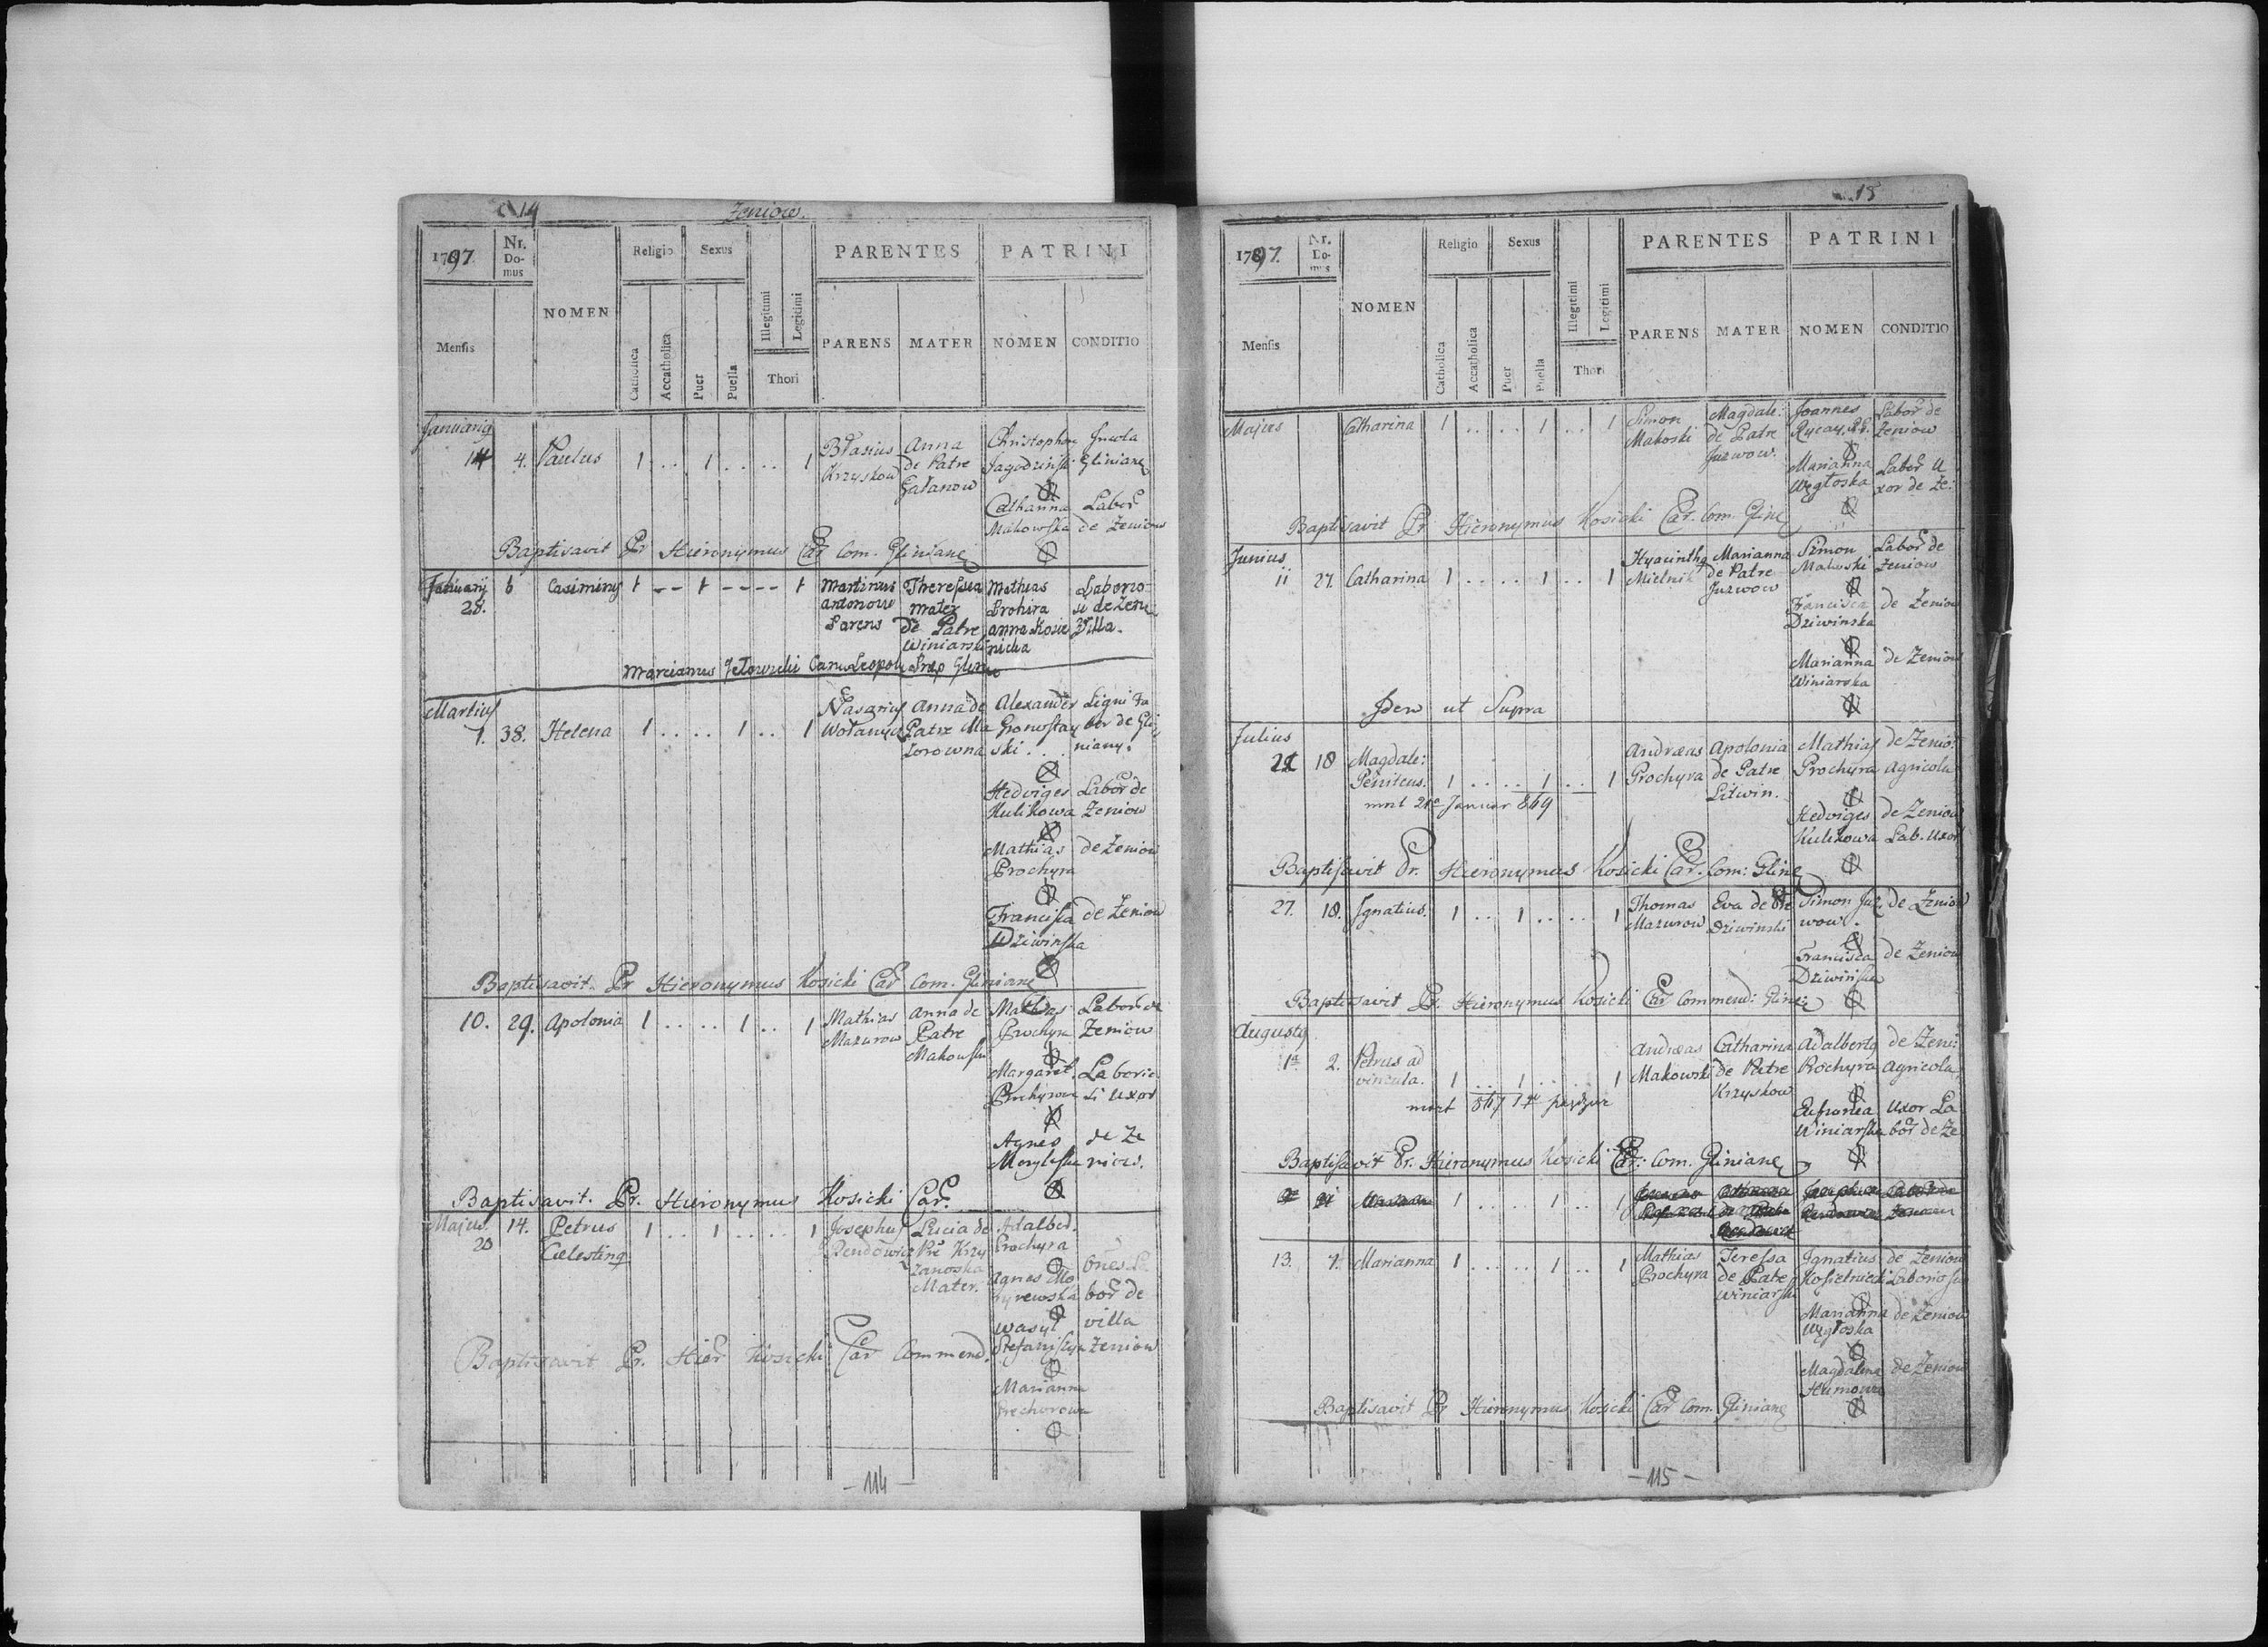 14 Zeniow.
1797. Nr. Domus NOMEN Religio Sexus PARENTES PATRINI
Mensis Catholica Accatholica Puer Puella Illegitimi Legitimi Thori PARENS MATER NOMEN CONDITIO
Januarius
14 4. Paulus 1 .. 1 .. .. 1
Błasius Krzyskow
Anna de Patre Gałanow
Christophor Jagodzinski Incola Gliniane
Catharina Makowska Labor de Zeniow
Baptisavit Pr Hieronymus Car Com. Gliniane
Januarij
28. 6 Casimirus 1 -- 1 -- -- 1
Martinus Antonow Parens
Theressia Mater de Patre Winiarski
Mathias Prohira
Anna Kosie nicka
Laborio si de Zeni Villa.
Marcianus Canu Leopol Præp Glinia
Martius
1. 38. Helena 1 .. .. 1 .. 1
Nasarius Wołanyn
Anna de Patre Ma zorowna
Alexander Gronostay ski ... Ligni Fa ber de Gli niany.
Hedviges Kulikowa Labor de Zeniow
Mathias Prochyra de Zeniow
Francisca Dziwinska de Zeniow
Baptisavit Pr Hieronymus Kosicki Car Com. Gliniane
10. 29. Apolonia 1 .. .. 1 .. 1
Mathias Mazurow
Anna de Patre Makowski
Mathias Prochyra Labor de Zeniow
Margaret. Prohyrowa Laborio si Uxor
Agnes de Ze niow.
Baptisavit. Pr. Hieronymus Kosicki Car.
Majus. 20 14. Petrus Cælestinus 1 .. 1 .. .. 1
Josephus Rendowicz
Lucia de Pre Krzy zanoska Mater.
Adalber. Prochyra
Agnes Mo ryrewska
Wasyl Stefaniszyn
Marianna Prochorowa
bor de villa Zeniow
Baptisavit Pr. Hier Kosicki Car Commend.
- 114 -
15
1797. Nr. Domus NOMEN Religio Sexus PARENTES PATRINI
Mensis Catholica Accatholica Puer Puella Illegitimi Legitimi Thori PARENS MATER NOMEN CONDITIO
Majus Catharina 1 .. .. 1 .. 1
Simon Makoski
Magdale: de Patre Juzwow.
Joannes Labor de Zeniow
Marianna Węgłoska Labor U xor de Ze:
Baptisavit Pr Hieronymus Kosicki Car. Com. Gline
Junius
11 27. Catharina 1 .. .. 1 .. 1
Hyacinthus Mielnik
Marianna de Patre Juzwow
Simon Makoski Labor de Zeniow
Francisca Dziwinska de Zeniow
Marianna Winiarska de Zeniow
Idem ut Supra
Julius
22 18 Magdale: Penitens. 1 .. .. 1 .. 1
mort 21a Januar 869
Andræas Prochyra
Apolonia de Patre Litwin.
Mathias Prochyra de Zenio: Agricola
Hedviges Kulikowa de Zeniow Lab. Uxor
Baptisavit Pr. Hieronymus Kosicki Car. Com: Gline
27. 18. Ignatius. 1 .. 1 .. .. 1
Thomas Mazurow
Eva de Pre Dziwinski
Simon Juz wow. de Zeniow
Francisca Dziwinska de Zeniow
Baptisavit Pr. Hieronymus Kosicki Car Commend: Gline:
Augustus
1a 2. Petrus ad vincula. 1 .. 1 .. .. 1
Andræas Makowski
Catharina de Patre Krzyskow
Adalbertus Prochyra de Zeni: Agricola
Winiarska Uxor La bor de Ze
Baptisavit Pr. Hieronymus Kosicki Car: Com. Gliniane
1 .. .. 1 .. 1
13. 7. Marianna 1 .. .. 1 .. 1
Mathias Prochyra
Teressa de Patre Winiarski
Ignatius Kosielnicki de Zeniow Laboriosus
Marianna Węgłoska de Zeniow
Magdalena de Zeniow
Baptisavit Pr Hieronymus Kosicki Car Com. Gliniane
- 115 -